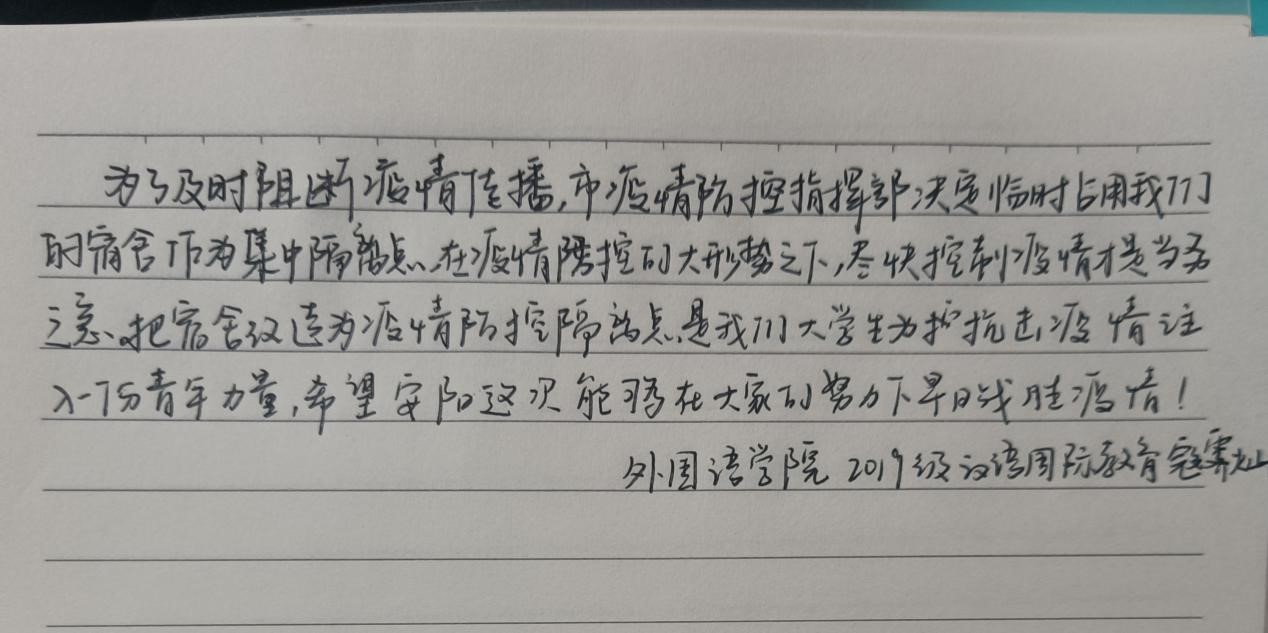 为了及时阻断疫情传播，市疫情防控指挥部决定临时占用我们
的宿舍作为集中隔离点，在疫情防控的大形势之下，尽快控制疫情才是当务
之急，把宿舍改造为疫情防控隔离点是我们大学生为抗击疫情注
入一份青年力量，希望安阳这次能够在大家的努力下早日战胜疫情！
外国语学院 2019级汉语国际教育